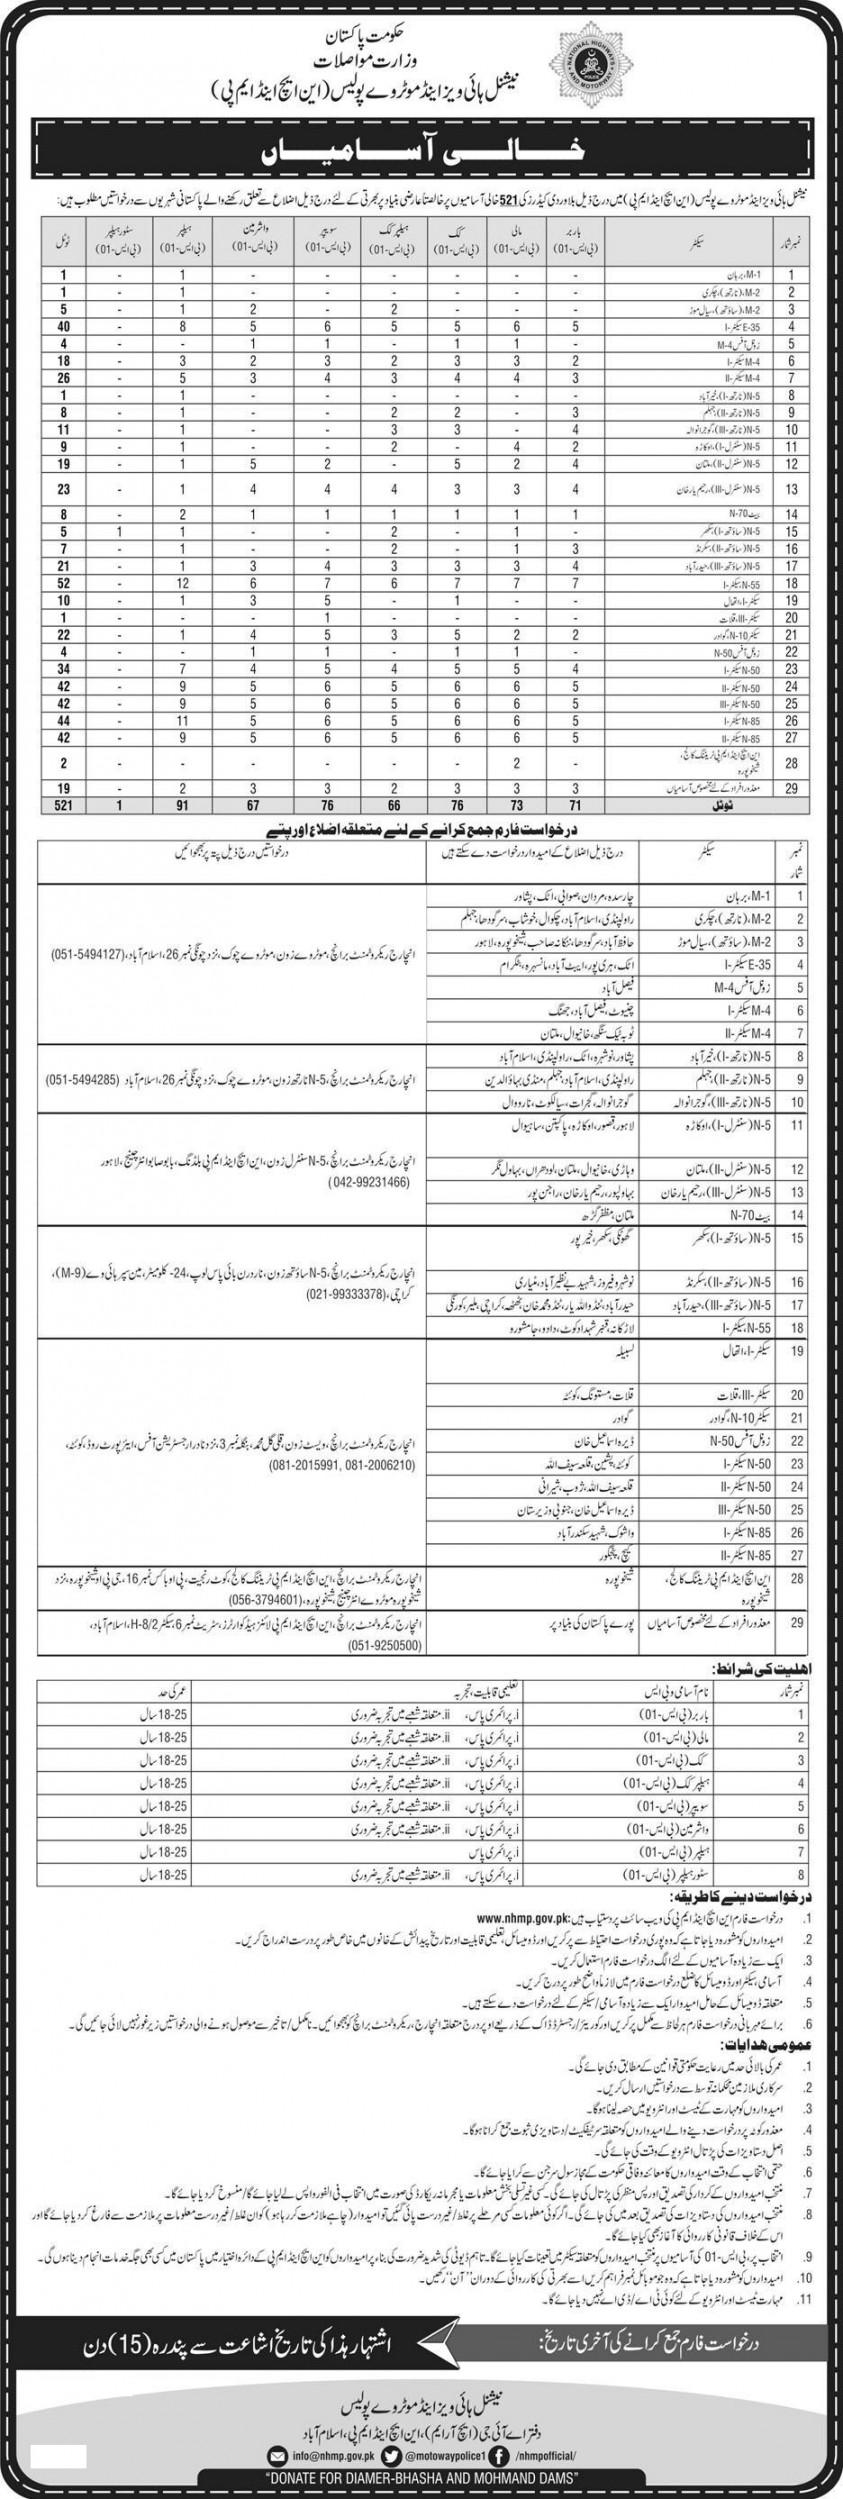 حکومت پاکستان
وزارت مواصلات
نیشنل ہائی ویز اینڈ موٹروے پولیس (این ایچ اینڈ ایم پی)
NATIONAL HIGHWAYS AND MOTORWAY POLICE
خالی آسامیاں
نیشنل ہائی ویز اینڈ موٹروے پولیس (این ایچ اینڈ ایم پی) میں درج ذیل بلاوردی کیڈرز کی 521 خالی آسامیوں پر خالصتاً عارضی بنیاد پر بھرتی کے لئے درج ذیل اضلاع سے تعلق رکھنے والے پاکستانی شہریوں سے درخواستیں مطلوب ہیں:
نمبر شمار | سیکٹر | باربر (بی ایس-01) | مالی (بی ایس-01) | کک (بی ایس-01) | ہیلپر کک (بی ایس-01) | سویپر (بی ایس-01) | واشرمین (بی ایس-01) | ہیلپر (بی ایس-01) | سٹور ہیلپر (بی ایس-01) | ٹوٹل
1 | M-1، برہان | - | - | - | - | - | - | 1 | - | 1
2 | M-2، (نارتھ)، چکری | - | - | - | - | - | - | 1 | - | 1
3 | M-2، (ساؤتھ)، سیال موڑ | - | - | - | 2 | - | 2 | 1 | - | 5
4 | E-35 سیکٹر-I | 5 | 6 | 5 | 5 | 6 | 5 | 8 | - | 40
5 | زونل آفس M-4 | - | 1 | 1 | - | 1 | 1 | - | - | 4
6 | M-4 سیکٹر-I | 2 | 3 | 3 | 2 | 3 | 2 | 3 | - | 18
7 | M-4 سیکٹر-II | 3 | 4 | 4 | 3 | 4 | 3 | 5 | - | 26
8 | N-5 (نارتھ-I)، خیرآباد | - | - | - | - | - | - | 1 | - | 1
9 | N-5 (نارتھ-II)، جہلم | 3 | - | 2 | 2 | - | - | 1 | - | 8
10 | N-5 (نارتھ-III)، گوجرانوالہ | 4 | - | 3 | 3 | - | - | 1 | - | 11
11 | N-5 (سنٹرل-I)، اوکاڑہ | 2 | 4 | - | 2 | - | - | 1 | - | 9
12 | N-5 (سنٹرل-II)، ملتان | 4 | 2 | 5 | - | 2 | 5 | 1 | - | 19
13 | N-5 (سنٹرل-III)، رحیم یار خان | 4 | 3 | 3 | 4 | 4 | 4 | 1 | - | 23
14 | بیٹ N-70 | 1 | 1 | 1 | 1 | 1 | 1 | 2 | - | 8
15 | N-5 (ساؤتھ-I)، سکھر | - | 1 | - | 2 | - | - | 1 | 1 | 5
16 | N-5 (ساؤتھ-II)، سکرنڈ | 3 | 1 | - | 2 | - | - | 1 | - | 7
17 | N-5 (ساؤتھ-III)، حیدرآباد | 4 | 3 | 3 | 3 | 4 | 3 | 1 | - | 21
18 | N-55 سیکٹر-I | 7 | 7 | 7 | 6 | 7 | 6 | 12 | - | 52
19 | سیکٹر-I، اتھال | - | - | 1 | - | 5 | 3 | 1 | - | 10
20 | سیکٹر-III، قلات | - | - | - | - | 1 | - | - | - | 1
21 | سیکٹر N-10، گوادر | 2 | 2 | 5 | 3 | 5 | 4 | 1 | - | 22
22 | زونل آفس N-50 | - | 1 | 1 | - | 1 | 1 | - | - | 4
23 | N-50 سیکٹر-I | 4 | 5 | 5 | 4 | 5 | 4 | 7 | - | 34
24 | N-50 سیکٹر-II | 5 | 6 | 6 | 5 | 6 | 5 | 9 | - | 42
25 | N-50 سیکٹر-III | 5 | 6 | 6 | 5 | 6 | 5 | 9 | - | 42
26 | N-85 سیکٹر-I | 5 | 6 | 6 | 5 | 6 | 5 | 11 | - | 44
27 | N-85 سیکٹر-II | 5 | 6 | 6 | 5 | 6 | 5 | 9 | - | 42
28 | این ایچ اینڈ ایم پی ٹریننگ کالج، شیخوپورہ | - | 2 | - | - | - | - | - | - | 2
29 | معذور افراد کے لئے مخصوص آسامیاں | 3 | 3 | 3 | 2 | 3 | 3 | 2 | - | 19
ٹوٹل | 71 | 73 | 76 | 66 | 76 | 67 | 91 | 1 | 521
درخواست فارم جمع کرانے کے لئے متعلقہ اضلاع اور پتے
نمبر شمار | سیکٹر | درج ذیل اضلاع کے امیدوار درخواست دے سکتے ہیں | درخواستیں درج ذیل پتہ پر بھجوائیں
1 | M-1، برہان | چارسدہ، مردان، صوابی، اٹک، پشاور
2 | M-2، (نارتھ)، چکری | راولپنڈی، اسلام آباد، چکوال، خوشاب، سرگودھا، جہلم
3 | M-2، (ساؤتھ)، سیال موڑ | حافظ آباد، سرگودھا، ننکانہ صاحب، شیخوپورہ، لاہور
4 | E-35 سیکٹر-I | اٹک، ہری پور، ایبٹ آباد، مانسہرہ، بٹگرام
5 | زونل آفس M-4 | فیصل آباد
6 | M-4 سیکٹر-I | چنیوٹ، فیصل آباد، جھنگ
7 | M-4 سیکٹر-II | ٹوبہ ٹیک سنگھ، خانیوال، ملتان
انچارج ریکروٹمنٹ برانچ، موٹروے زون، موٹروے چوک، نزد چونگی نمبر 26، اسلام آباد، (051-5494127)
8 | N-5 (نارتھ-I)، خیرآباد | پشاور، نوشہرہ، اٹک، راولپنڈی، اسلام آباد
9 | N-5 (نارتھ-II)، جہلم | راولپنڈی، اسلام آباد، جہلم، منڈی بہاؤالدین
10 | N-5 (نارتھ-III)، گوجرانوالہ | گوجرانوالہ، گجرات، سیالکوٹ، نارووال
انچارج ریکروٹمنٹ برانچ، N-5 نارتھ زون، موٹروے چوک، نزد چونگی نمبر 26، اسلام آباد (051-5494285)
11 | N-5 (سنٹرل-I)، اوکاڑہ | لاہور، قصور، اوکاڑہ، پاکپتن، ساہیوال
12 | N-5 (سنٹرل-II)، ملتان | وہاڑی، خانیوال، ملتان، لودھراں، بہاول نگر
13 | N-5 (سنٹرل-III)، رحیم یار خان | بہاولپور، رحیم یار خان، راجن پور
14 | بیٹ N-70 | ملتان، مظفر گڑھ
انچارج ریکروٹمنٹ برانچ، N-5 سنٹرل زون، این ایچ اینڈ ایم پی بلڈنگ، بابو صابو انٹر چینج، لاہور
(042-99231466)
15 | N-5 (ساؤتھ-I)، سکھر | گھوٹکی، سکھر، خیر پور
16 | N-5 (ساؤتھ-II)، سکرنڈ | نوشہرو فیروز، شہید بے نظیر آباد، مٹیاری
17 | N-5 (ساؤتھ-III)، حیدرآباد | حیدرآباد، ٹنڈو اللہ یار، ٹنڈو محمد خان، ٹھٹھہ، کراچی، ملیر، کورنگی
18 | N-55، سیکٹر-I | لاڑکانہ، قمبر شہدادکوٹ، دادو، جامشورو
انچارج ریکروٹمنٹ برانچ، N-5 ساؤتھ زون، ناردرن بائی پاس لوپ، 24- کلومیٹر، مین سپر ہائی وے (M-9)،
کراچی، (021-99333378)
19 | سیکٹر-I، اتھال | لسبیلہ
20 | سیکٹر-III، قلات | قلات، مستونگ، کوئٹہ
21 | سیکٹر N-10، گوادر | گوادر
22 | زونل آفس N-50 | ڈیرہ اسماعیل خان
23 | N-50 سیکٹر-I | کوئٹہ، پشین، قلعہ سیف اللہ
24 | N-50 سیکٹر-II | قلعہ سیف اللہ، ژوب، شیرانی
25 | N-50 سیکٹر-III | ڈیرہ اسماعیل خان، جنوبی وزیرستان
26 | N-85 سیکٹر-I | واشوک، شہید سکندر آباد
27 | N-85 سیکٹر-II | کیچ، پنجگور
انچارج ریکروٹمنٹ برانچ، ویسٹ زون، کلی گل محمد، بنگلہ نمبر 3، نزد نادرا رجسٹریشن آفس، ایئرپورٹ روڈ، کوئٹہ،
(081-2015991, 081-2006210)
28 | این ایچ اینڈ ایم پی ٹریننگ کالج، شیخوپورہ | شیخوپورہ
انچارج ریکروٹمنٹ برانچ، این ایچ اینڈ ایم پی ٹریننگ کالج، کوٹ رنجیت، پی او باکس نمبر 16، جی پی او شیخوپورہ، نزد
شیخوپورہ موٹروے انٹرچینج، شیخوپورہ، (056-3794601)
29 | معذور افراد کے لئے مخصوص آسامیاں | پورے پاکستان کی بنیاد پر
انچارج ریکروٹمنٹ برانچ، این ایچ اینڈ ایم پی لائنز ہیڈ کوارٹرز، سٹریٹ نمبر 6، سیکٹر H-8/2، اسلام آباد،
(051-9250500)
اہلیت کی شرائط:
نمبر شمار | نام آسامی و بی ایس | تعلیمی قابلیت، تجربہ | عمر کی حد
1 | باربر (بی ایس-01) | i. پرائمری پاس، ii. متعلقہ شعبے میں تجربہ ضروری | 18-25 سال
2 | مالی (بی ایس-01) | i. پرائمری پاس، ii. متعلقہ شعبے میں تجربہ ضروری | 18-25 سال
3 | کک (بی ایس-01) | i. پرائمری پاس، ii. متعلقہ شعبے میں تجربہ ضروری | 18-25 سال
4 | ہیلپر کک (بی ایس-01) | i. پرائمری پاس، ii. متعلقہ شعبے میں تجربہ ضروری | 18-25 سال
5 | سویپر (بی ایس-01) | i. پرائمری پاس، ii. متعلقہ شعبے میں تجربہ ضروری | 18-25 سال
6 | واشرمین (بی ایس-01) | i. پرائمری پاس، ii. متعلقہ شعبے میں تجربہ ضروری | 18-25 سال
7 | ہیلپر (بی ایس-01) | i. پرائمری پاس | 18-25 سال
8 | سٹور ہیلپر (بی ایس-01) | i. پرائمری پاس، ii. متعلقہ شعبے میں تجربہ ضروری | 18-25 سال
درخواست دینے کا طریقہ:
1. درخواست فارم این ایچ اینڈ ایم پی کی ویب سائٹ پر دستیاب ہیں: www.nhmp.gov.pk
2. امیدواروں کو مشورہ دیا جاتا ہے کہ وہ پوری درخواست احتیاط سے پر کریں اور ڈومیسائل، تعلیمی قابلیت اور تاریخ پیدائش کے خانوں میں خاص طور پر درست اندراج کریں۔
3. ایک سے زیادہ آسامیوں کے لئے الگ درخواست فارم استعمال کریں۔
4. آسامی، سیکٹر اور ڈومیسائل کا ضلع درخواست فارم میں لازماً واضح طور پر درج کریں۔
5. متعلقہ ڈومیسائل کے حامل امیدوار ایک سے زیادہ آسامی/سیکٹر کے لئے درخواست دے سکتے ہیں۔
6. برائے مہربانی درخواست فارم ہر لحاظ سے مکمل پر کریں اور کوریئر/رجسٹرڈ ڈاک کے ذریعے اوپر درج متعلقہ انچارج، ریکروٹمنٹ برانچ کو بھجوائیں۔ نامکمل/تاخیر سے موصول ہونے والی درخواستیں زیر غور نہیں لائی جائیں گی۔
عمومی ہدایات:
1. عمر کی بالائی حد میں رعایت حکومتی قوانین کے مطابق دی جائے گی۔
2. سرکاری ملازمین محکمانہ توسط سے درخواستیں ارسال کریں۔
3. امیدواروں کو مہارت کے ٹیسٹ اور انٹرویو میں حصہ لینا ہوگا۔
4. معذور کوٹہ پر درخواست دینے والے امیدواروں کو متعلقہ سرٹیفکیٹ/دستاویزی ثبوت جمع کرانا ہوگا۔
5. اصل دستاویزات کی پڑتال انٹرویو کے وقت کی جائے گی۔
6. حتمی انتخاب کے وقت امیدواروں کا معائنہ وفاقی حکومت کے مجاز سول سرجن سے کرایا جائے گا۔
7. منتخب امیدواروں کے کردار کی تصدیق اور پس منظر کی پڑتال کی جائے گی۔ کسی غیر تسلی بخش معلومات یا مجرمانہ ریکارڈ کی صورت میں انتخاب فی الفور واپس لے لیا جائے گا/منسوخ کر دیا جائے گا۔
8. منتخب امیدواروں کی دستاویزات کی تصدیق بعد میں کی جائے گی۔ اگر کوئی معلومات کسی مرحلے پر غلط/غیر درست پائی گئیں تو امیدوار (چاہے ملازمت کر رہا ہو) کو ان غلط/غیر درست معلومات پر ملازمت سے فارغ کر دیا جائے گا اور
اس کے خلاف قانونی کارروائی کا آغاز بھی کیا جائے گا۔
9. انتخاب پر، بی ایس-01 کی آسامیوں پر منتخب امیدواروں کو متعلقہ سیکٹر میں تعینات کیا جائے گا۔ تاہم ڈیوٹی کی شدید ضرورت کی بناء پر امیدواروں کو این ایچ اینڈ ایم پی کے دائرہ اختیار میں پاکستان میں کسی بھی جگہ خدمات انجام دینا ہوں گی۔
10. امیدواروں کو مشورہ دیا جاتا ہے کہ وہ جو موبائل نمبر فراہم کریں اسے بھرتی کی کارروائی کے دوران "آن" رکھیں۔
11. مہارت ٹیسٹ اور انٹرویو کے لئے کوئی ٹی اے/ڈی اے نہیں دیا جائے گا۔
درخواست فارم جمع کرانے کی آخری تاریخ: اشتہار ہذا کی تاریخ اشاعت سے پندرہ (15) دن
نیشنل ہائی ویز اینڈ موٹروے پولیس
دفتر اے آئی جی (ایچ آر ایم)، این ایچ اینڈ ایم پی، اسلام آباد
info@nhmp.gov.pk @motowaypolice1 /nhmpofficial/
"DONATE FOR DIAMER-BHASHA AND MOHMAND DAMS"